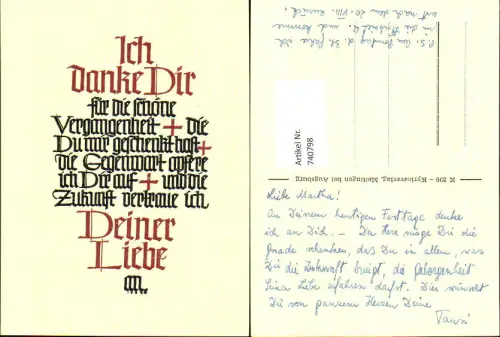 Ich
danke Dir
für die schöne
Vergangenheit + die
Du mir geschenkt hast +
die Gegenwart opfere
ich Dir auf + und die
Zukunft vertraue ich
Deiner
Liebe
an.
P.S. Am Sonntag d. 31. fahre ich
in die und komme
erst nach dem 20. VIII. zurück.
Artikel Nr.
740798
K 596 – Kyrioswerlag, Meitingen bei Augsburg
Liebe Martha!
An Deinem heutigen Festtage denke
ich an Dich. – Der Herr möge Dir die
Gnade schenken, daß Du in allem, was
Dir die Zukunft bringt, die Geborgenheit
Seiner Liebe erfahren darfst. Dies wünscht
Dir von ganzem Herzen Deine